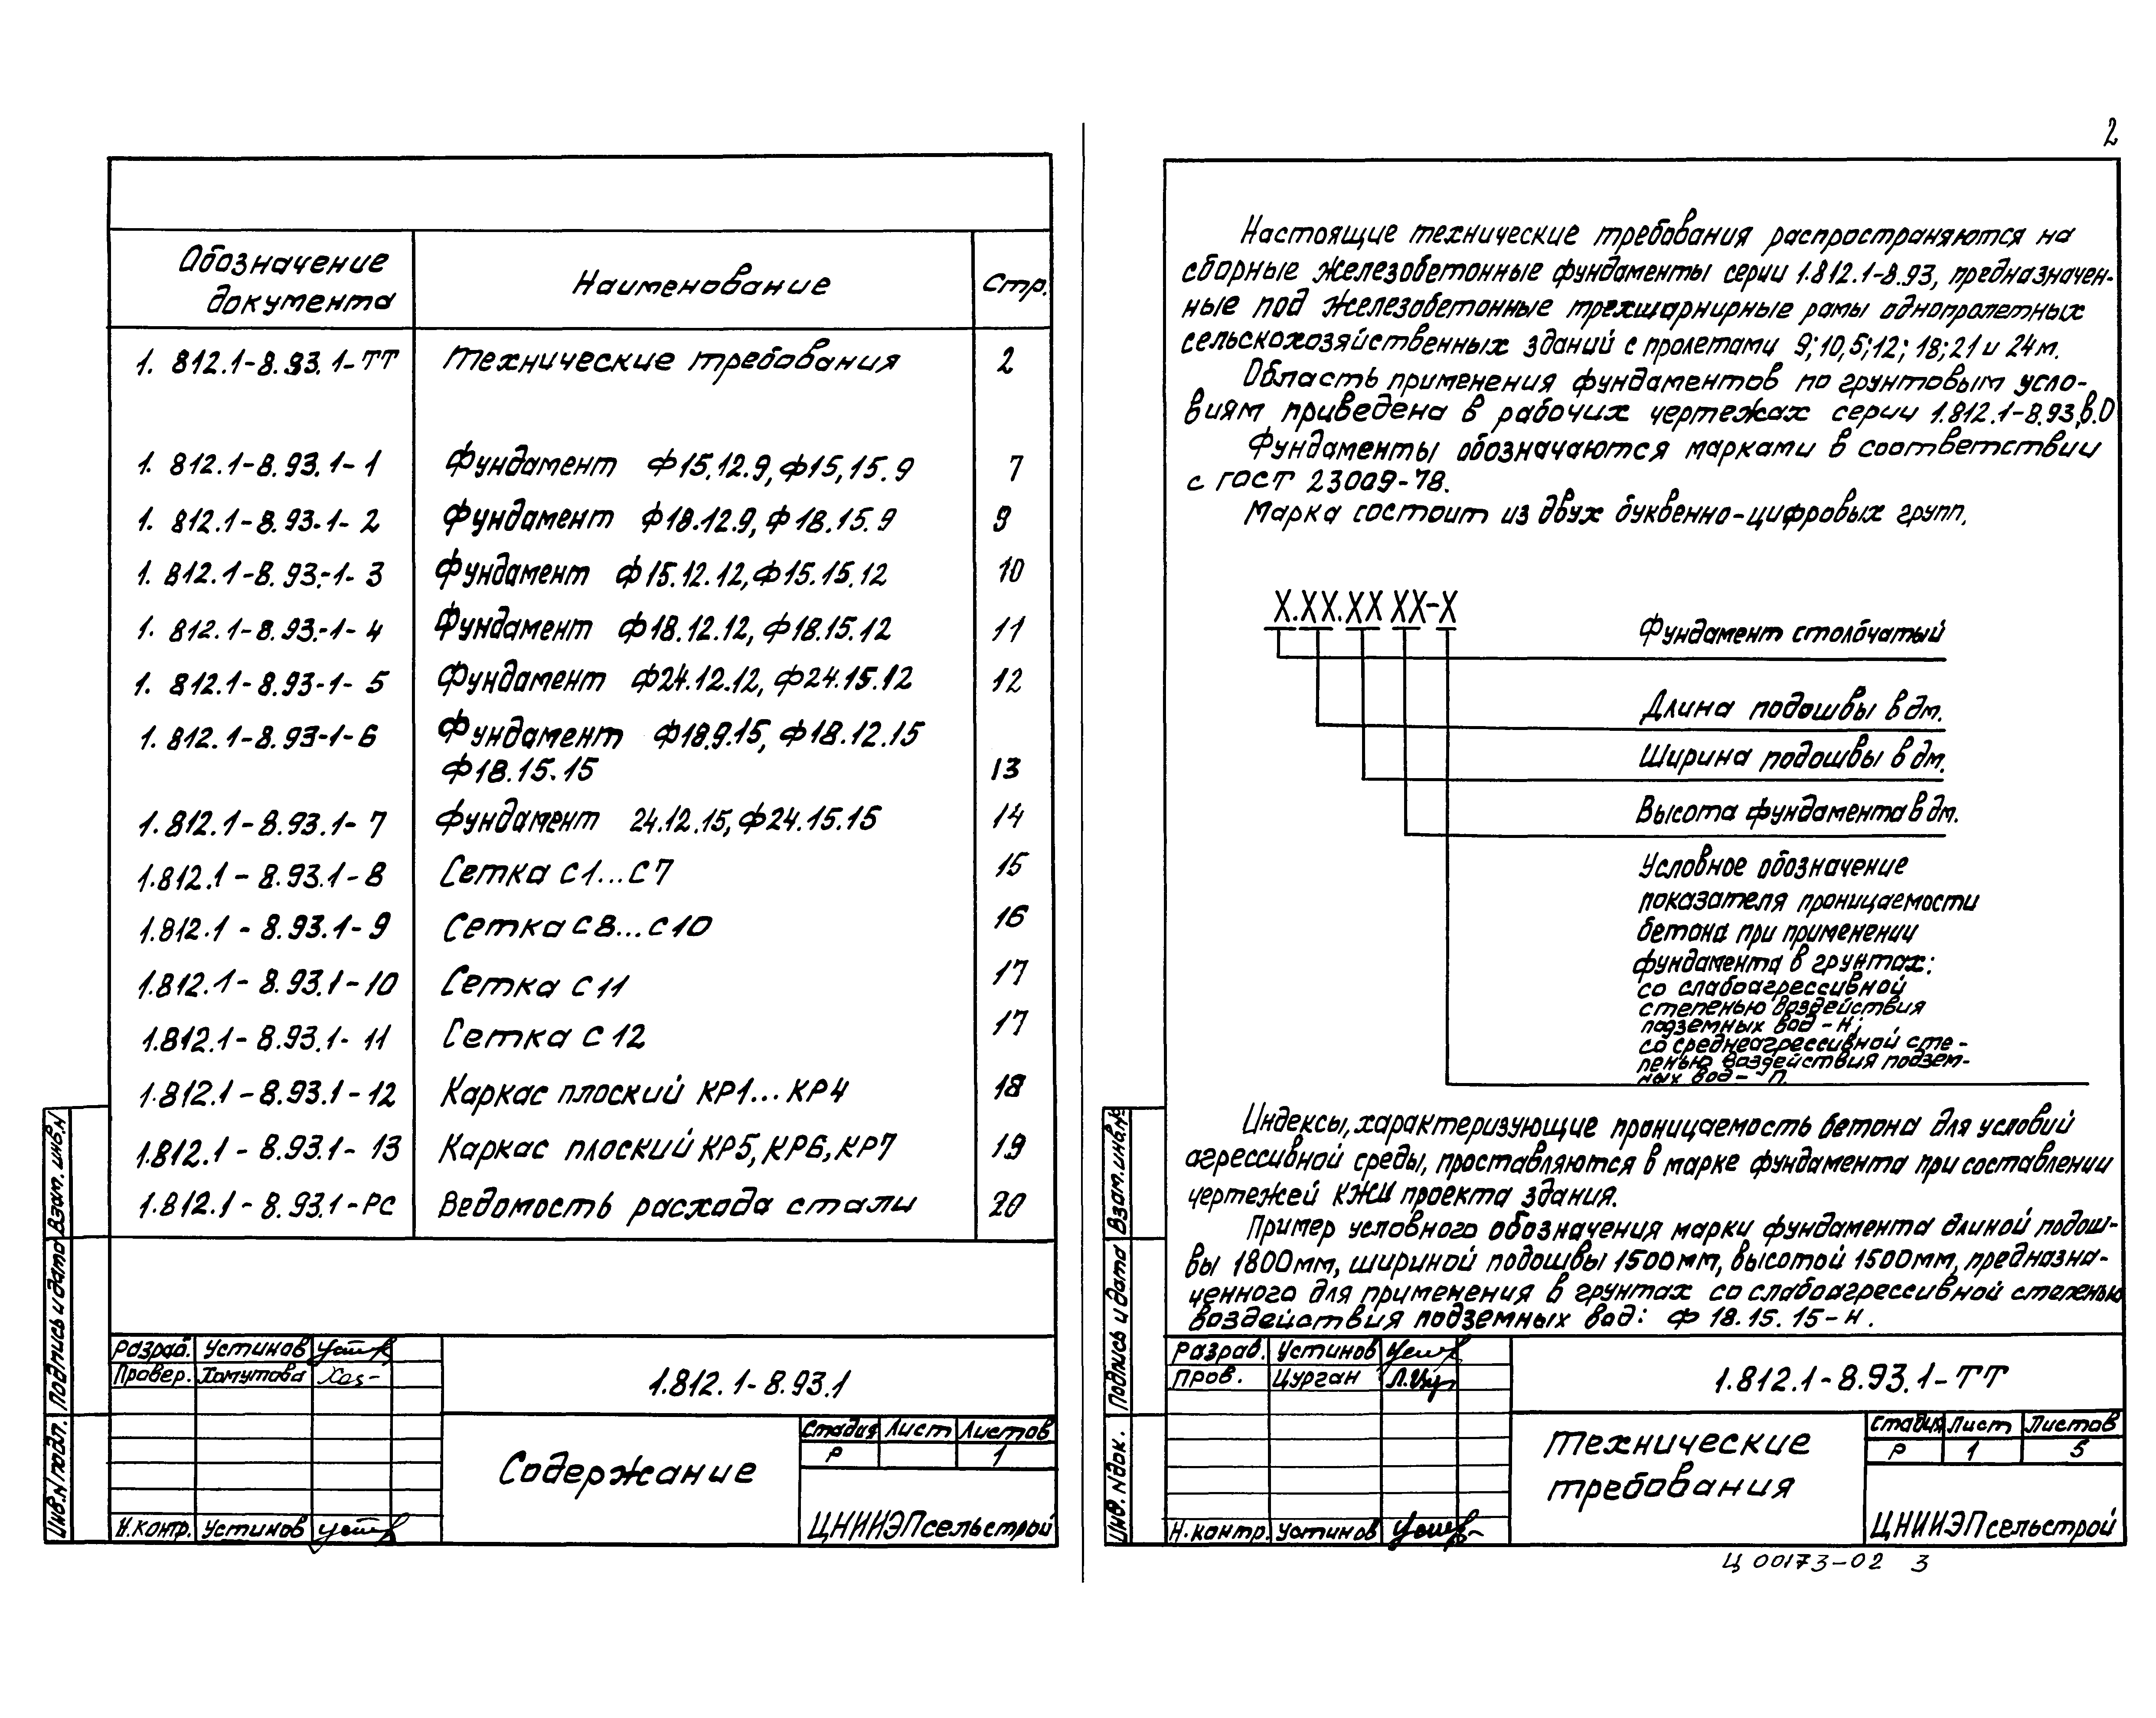 Обозначение документа Наименование Стр.
1. 812.1-8.93.1-ТТ Технические требования 2
1. 812.1-8.93.1-1 Фундамент Ф15.12.9, Ф15,15.9 7
1. 812.1-8.93-1-2 Фундамент Ф18.12.9, Ф18.15.9 9
1. 812.1-8.93.-1-3 Фундамент Ф15.12.12, Ф15.15.12 10
1. 812.1-8.93.-1-4 Фундамент Ф18.12.12, Ф18.15.12 11
1. 812.1-8.93-1-5 Фундамент Ф24.12.12, Ф24.15.12 12
1. 812.1-8.93-1-6 Фундамент Ф18.9.15, Ф18.12.15
Ф18.15.15 13
1.812.1-8.93.1-7 Фундамент 24.12.15, Ф24.15.15 14
1.812.1-8.93.1-8 Сетка С1...С7 15
1.812.1-8.93.1-9 Сетка С8...С10 16
1.812.1-8.93.1-10 Сетка С11 17
1.812.1-8.93.1-11 Сетка С12 17
1.812.1-8.93.1-12 Каркас плоский КР1...КР4 18
1.812.1-8.93.1-13 Каркас плоский КР5, КР6, КР7 19
1.812.1-8.93.1-РС Ведомость расхода стали 20
Инв.N подл. Подпись и дата Взам. инв.N
Разраб. Устинов
Провер. Хомутова
Н.контр. Устинов
1.812.1-8.93.1
Содержание
Стадия Лист Листов
Р 1
ЦНИИЭПсельстрой
2
Настоящие технические требования распространяются на
сборные железобетонные фундаменты серии 1.812.1-8.93, предназначен-
ные под железобетонные трехшарнирные рамы однопролетных
сельскохозяйственных зданий с пролетами 9; 10,5; 12; 18; 21 и 24м.
Область применения фундаментов по грунтовым усло-
виям приведена в рабочих чертежах серии 1.812.1-8.93, в.0
Фундаменты обозначаются марками в соответствии
с ГОСТ 23009-78.
Марка состоит из двух буквенно-цифровых групп.
Х.ХХ.ХХ ХХ-Х
Фундамент столбчатый
Длина подошвы в дм.
Ширина подошвы в дм.
Высота фундамента в дм.
Условное обозначение
показателя проницаемости
бетона при применении
фундамента в грунтах:
со слабоагрессивной
степенью воздействия
подземных вод - Н;
со среднеагрессивной сте-
пенью воздействия подзем-
ных вод - П.
Индексы, характеризующие проницаемость бетона для условий
агрессивной среды, проставляются в марке фундамента при составлении
чертежей КЖИ проекта здания.
Пример условного обозначения марки фундамента длиной подош-
вы 1800мм, шириной подошвы 1500мм, высотой 1500мм, предназна-
ченного для применения в грунтах со слабоагрессивной степенью
воздействия подземных вод: Ф 18.15.15-Н.
Инв. N док. Подпись и дата Взам.инв.N
Разраб. Устинов
Пров. Цурган
Н.контр. Устинов
1.812.1-8.93.1-ТТ
Технические
требования
Стадия Лист Листов
Р 1 5
ЦНИИЭПсельстрой
Ц00173-02 3